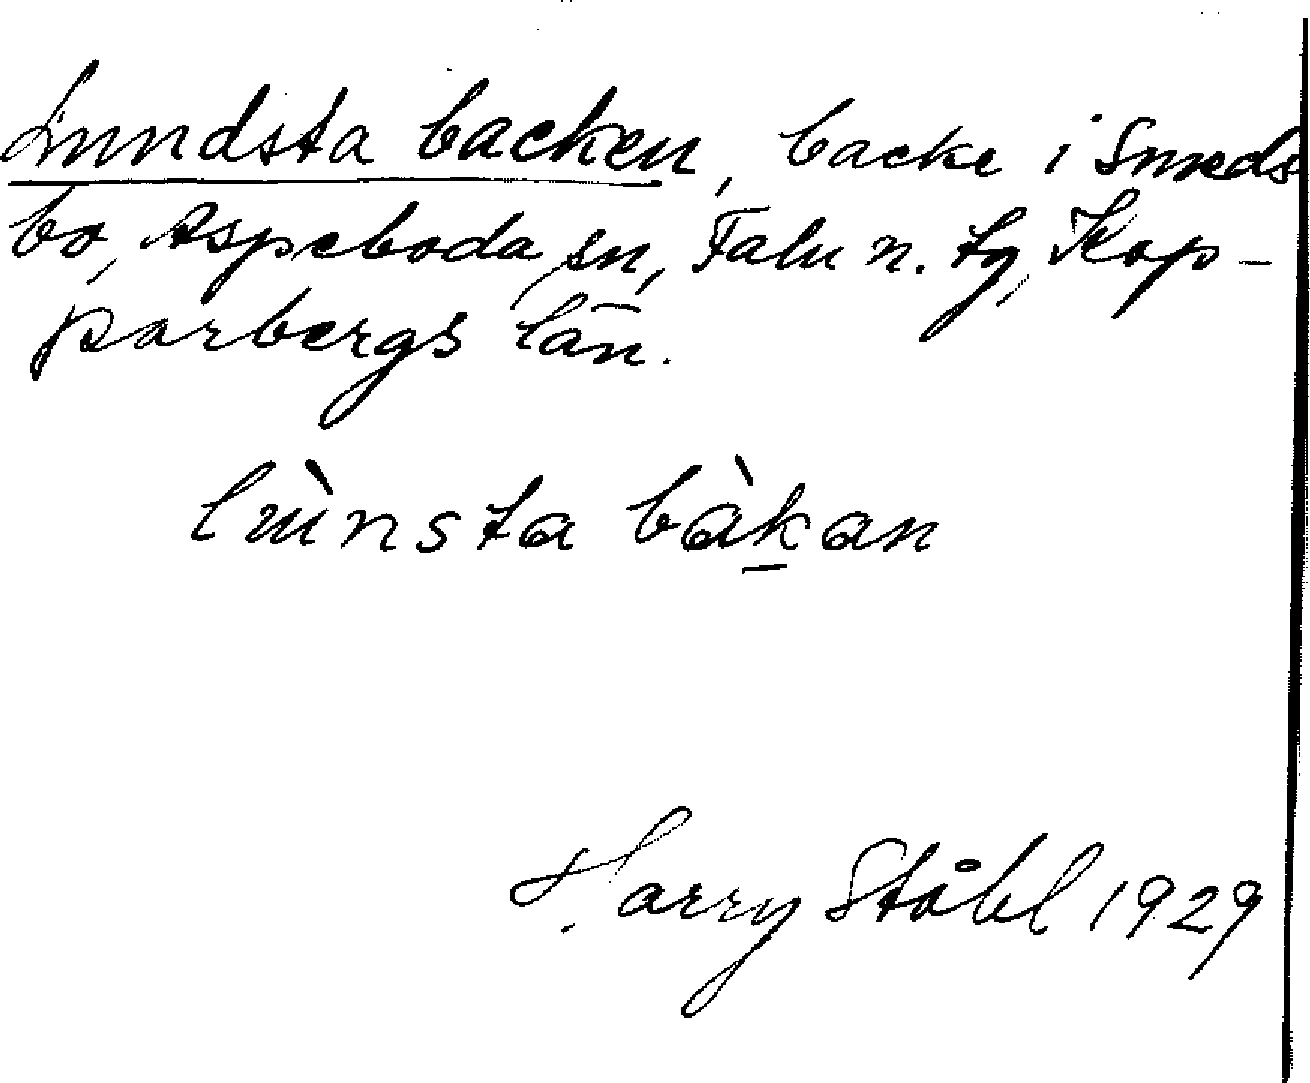 Lundsta backen, backe i Smeds
bo, Aspeboda sn, Falu n. tg, Kop-
parbergs län.
lùnsta bàk̲an
Harry Ståhl 1929